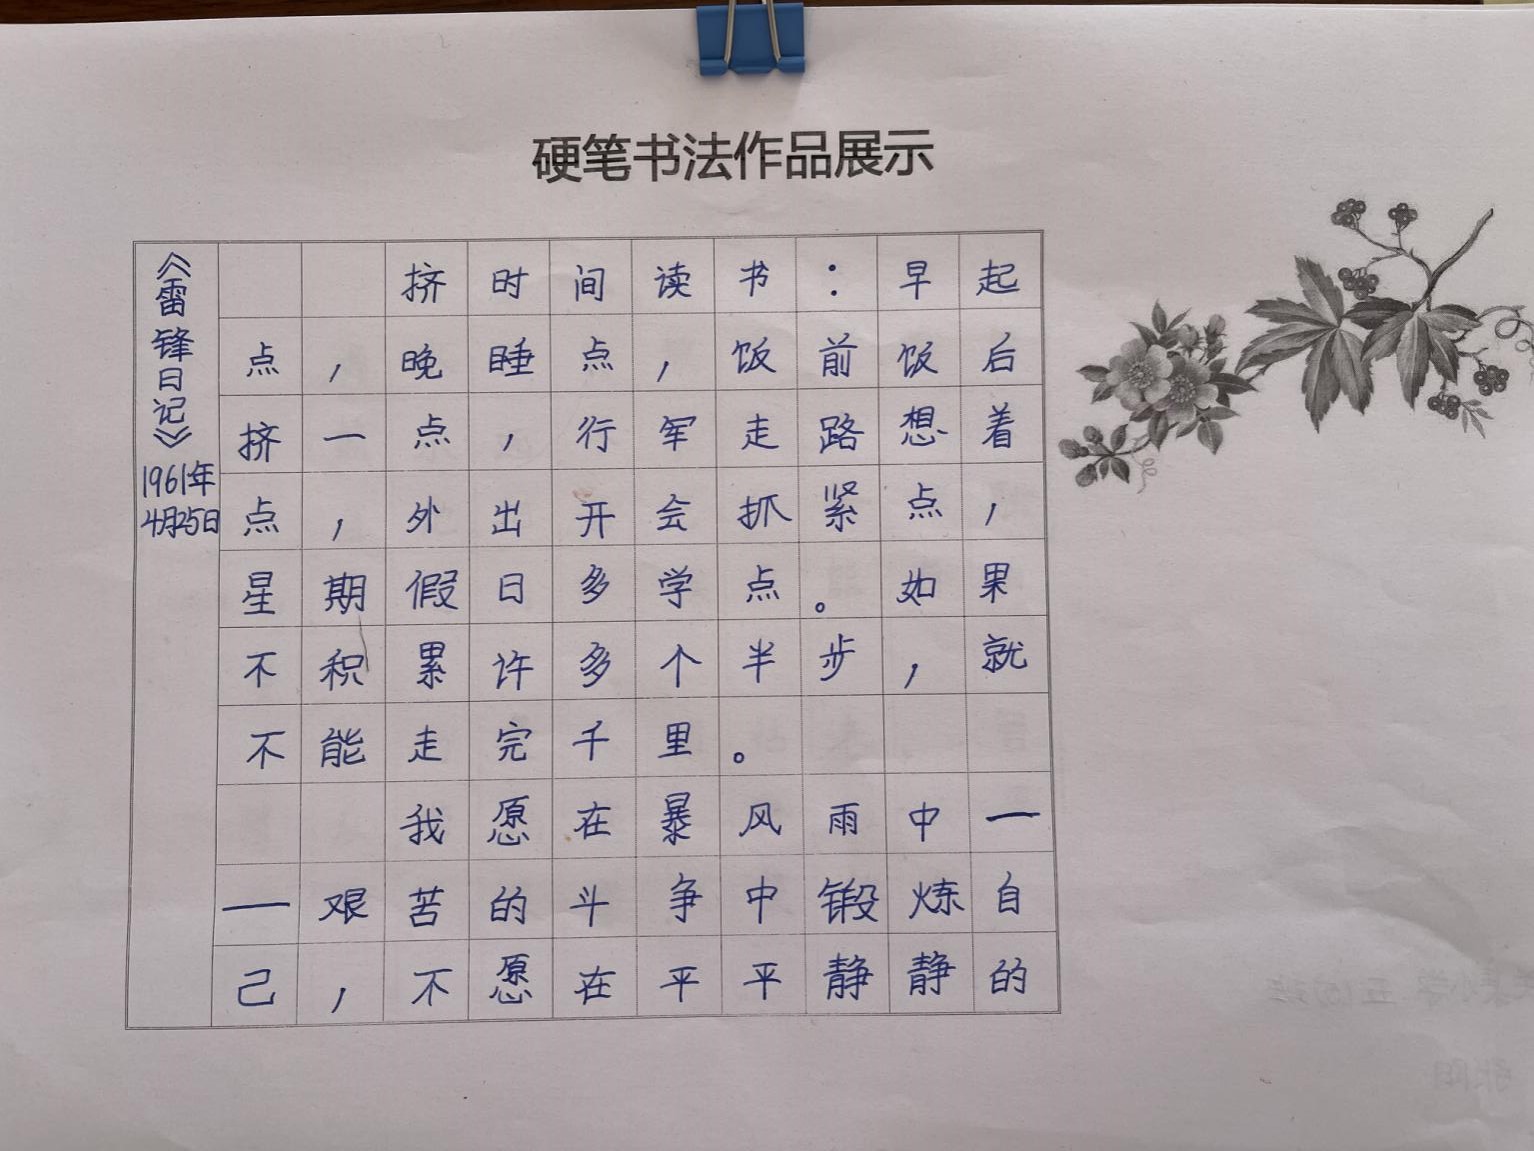 硬笔书法作品展示
《雷锋日记》
1961年
4月25日
挤时间读书：早起
点，晚睡点，饭前饭后
挤一点，行军走路想着
点，外出开会抓紧点，
星期假日多学点。如果
不积累许多个半步，就
不能走完千里。
我愿在暴风雨中一
一艰苦的斗争中锻炼自
己，不愿在平平静静的